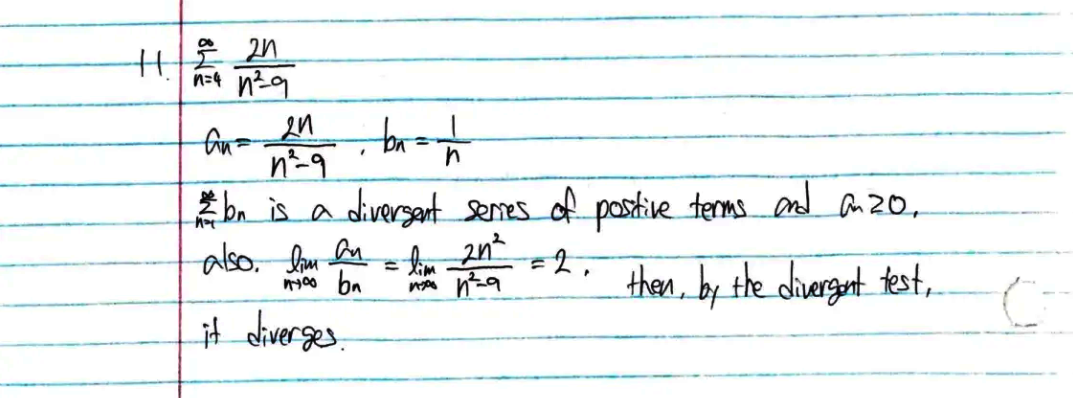 11. ∞ Σ n=4 2n / n²-9
an = 2n / n²-9 , bn = 1 / n
∞ Σ n=1 bn is a divergent series of positive terms and an ≥ 0,
also. lim n→∞ an / bn = lim n→∞ 2n² / n²-9 = 2 , then, by the divergent test,
it diverges.